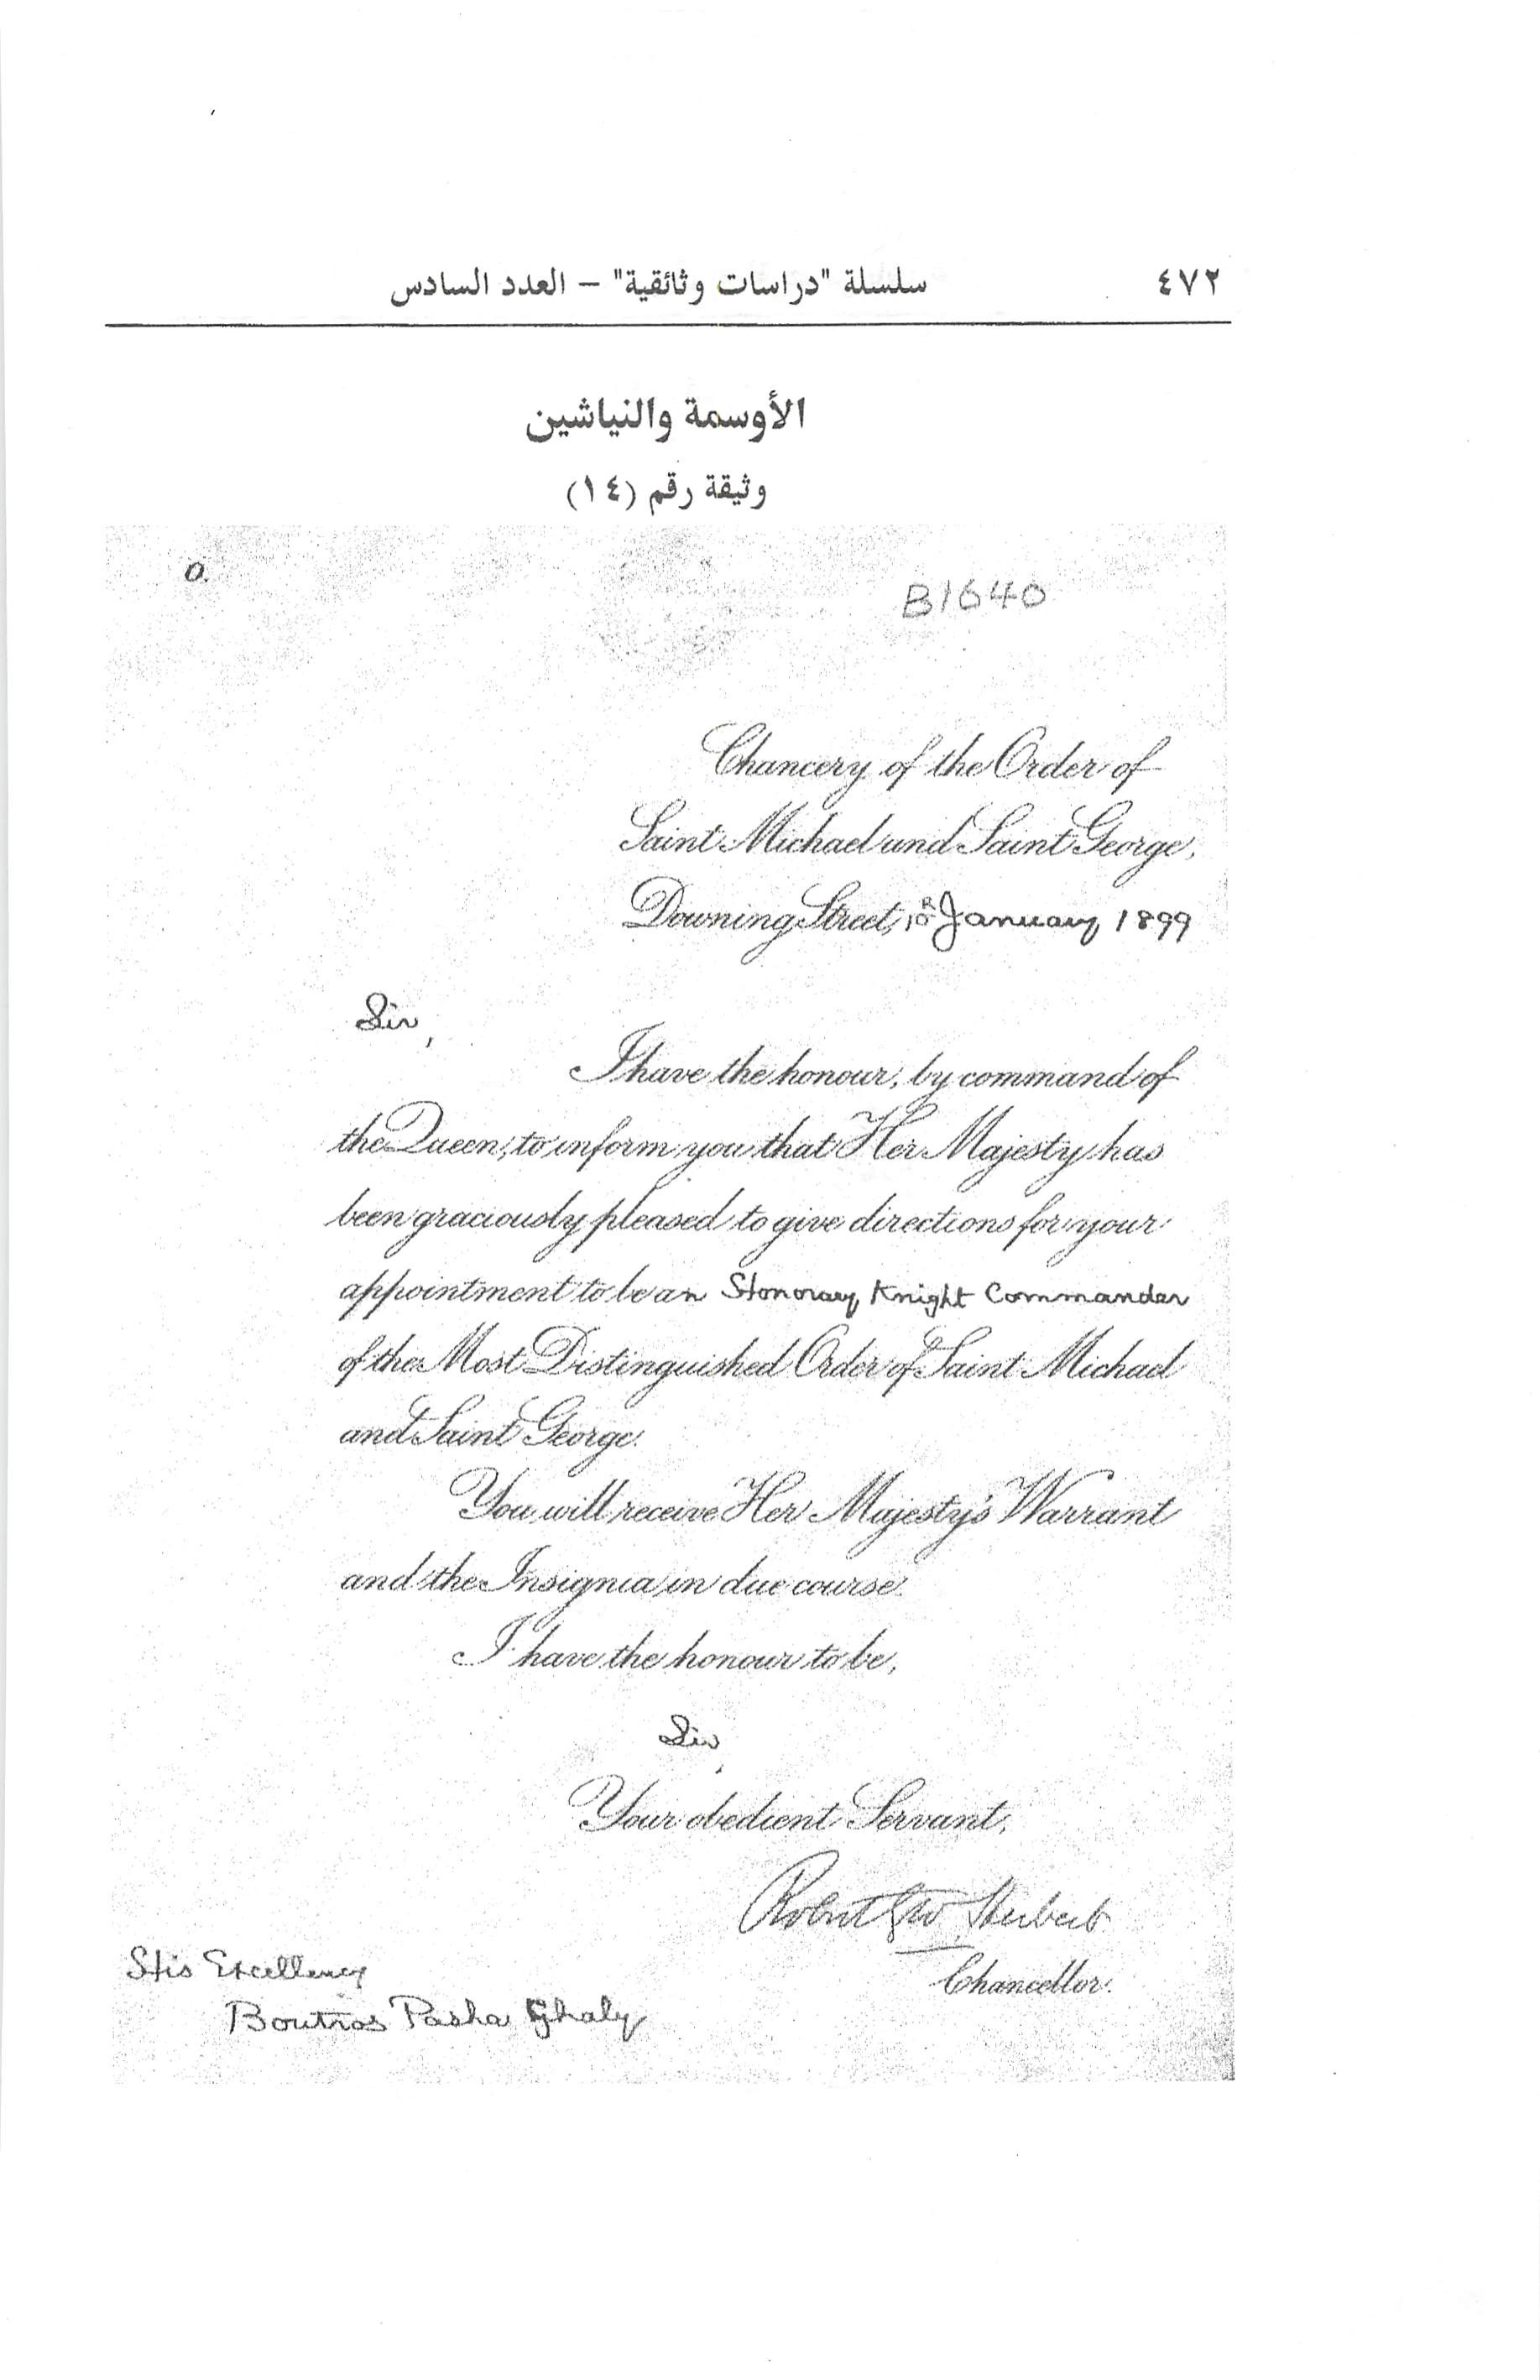 ٤٧٢ سلسلة "دراسات وثائقية" – العدد السادس
الأوسمة والنياشين
وثيقة رقم (١٤)
O.
B1640
Chancery of the Order of
Saint Michael and Saint George,
Downing Street, January 1899
Sir,
I have the honour, by command of
the Queen, to inform you that Her Majesty has
been graciously pleased to give directions for your
appointment to be an Honorary Knight Commander
of the Most Distinguished Order of Saint Michael
and Saint George.
You will receive Her Majesty's Warrant
and the Insignia in due course.
I have the honour to be,
Sir,
Your obedient Servant,
Robert G W Herbert
Chancellor.
His Excellency
Boutros Pasha Ghaly